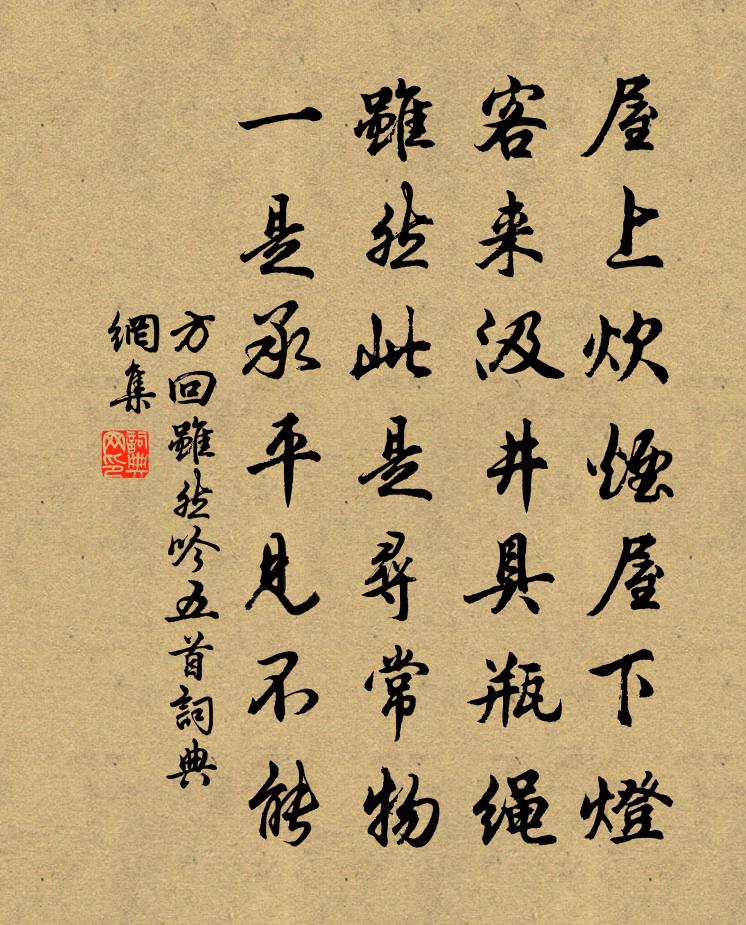 屋上炊煙屋下燈
客来汲井具瓶繩
雖然此是尋常物
一是承平見不能
方回雖然吟五首詞典
網集
詞典
网印